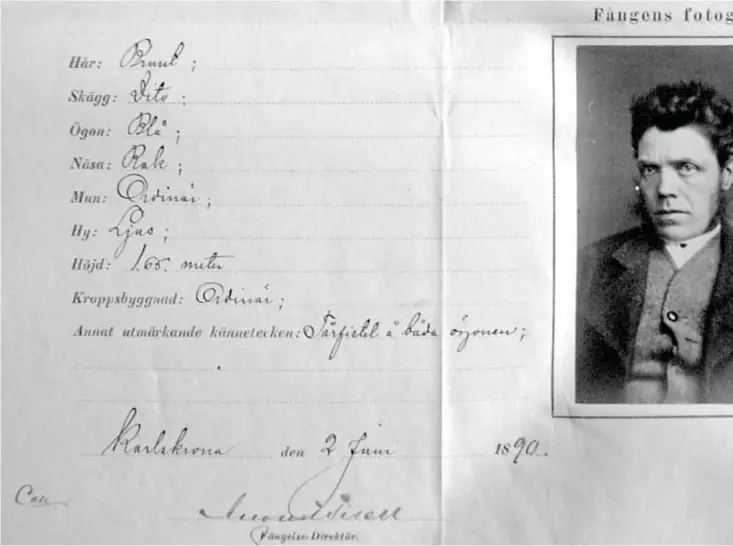 Fångens fotog
Hår: Brunt ;
Skägg: Dito ;
Ögon: Blå ;
Näsa: Rak ;
Mun: Ordinär ;
Hy: Ljus ;
Höjd: 1.65. meter
Kroppsbyggnad: Ordinär ;
Annat utmärkande kännetecken: Tårfistel å båda ögonen ;
Karlskrona den 2 Juni 1890.
Fängelse-Direktör.